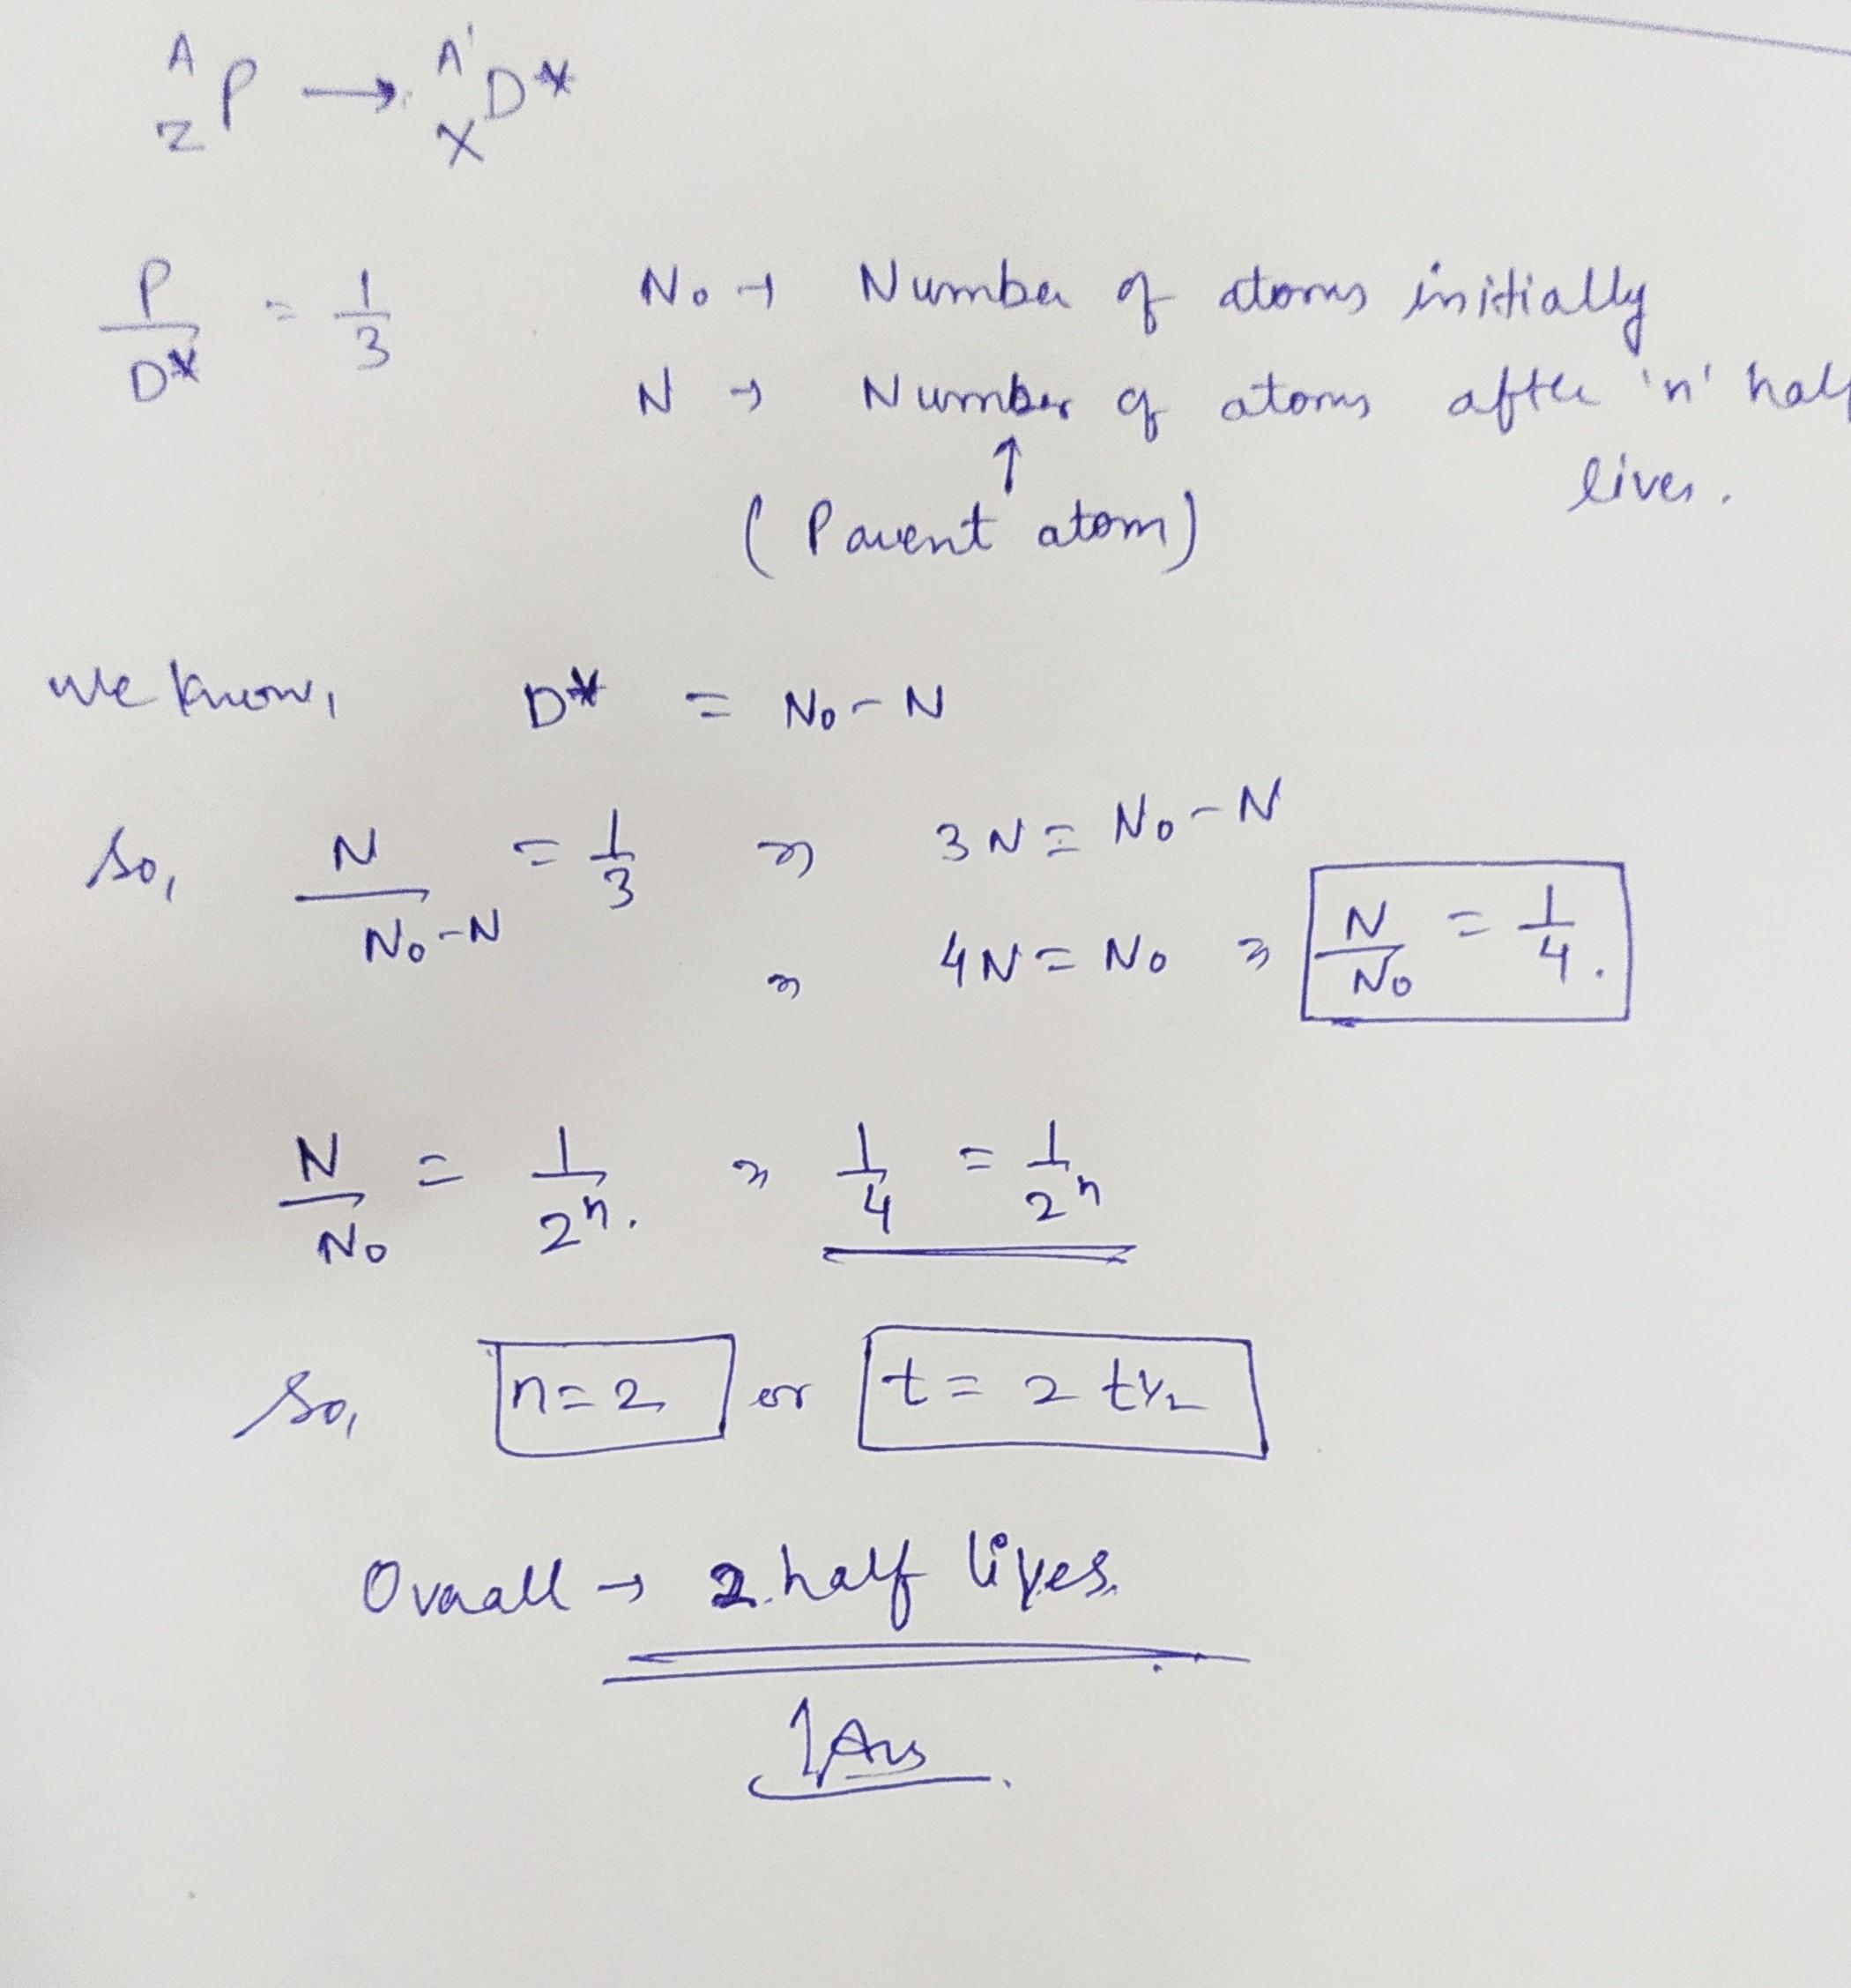 A Z P → A' X D*
P/D* = 1/3 N₀ → Number of atoms initially
N → Number of atoms after 'n' half lives.
↑
(Parent atom)
we know, D* = N₀ - N
So, N/N₀-N = 1/3 ⇒ 3N = N₀ - N
⇒ 4N = N₀ ⇒ N/N₀ = 1/4.
N/N₀ = 1/2ⁿ. ⇒ 1/4 = 1/2ⁿ
So, n = 2 or t = 2 t½
Overall → 2 half lives.
↑ Ans.